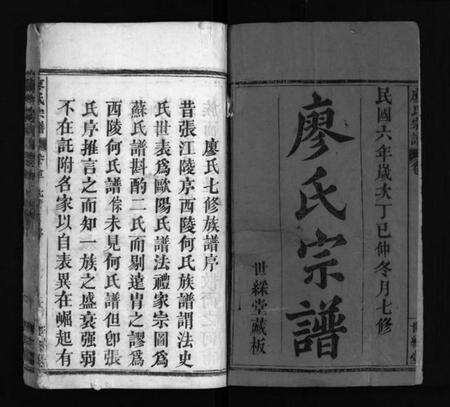 民國六年歲次丁巳仲冬月七修
廖氏宗譜
世綵堂藏板
廖氏七修族譜序
昔張江陵序西陵何氏族譜謂法史
氏世表為歐陽氏譜法禮家宗圖為
蘇氏譜斟酌二氏而剔遠冑之謬為
西陵何氏譜俗未見何氏譜但卽張
氏序推言之而知一族之盛衰強弱
不在託附名家以自表異在崛起有
廖氏宗譜